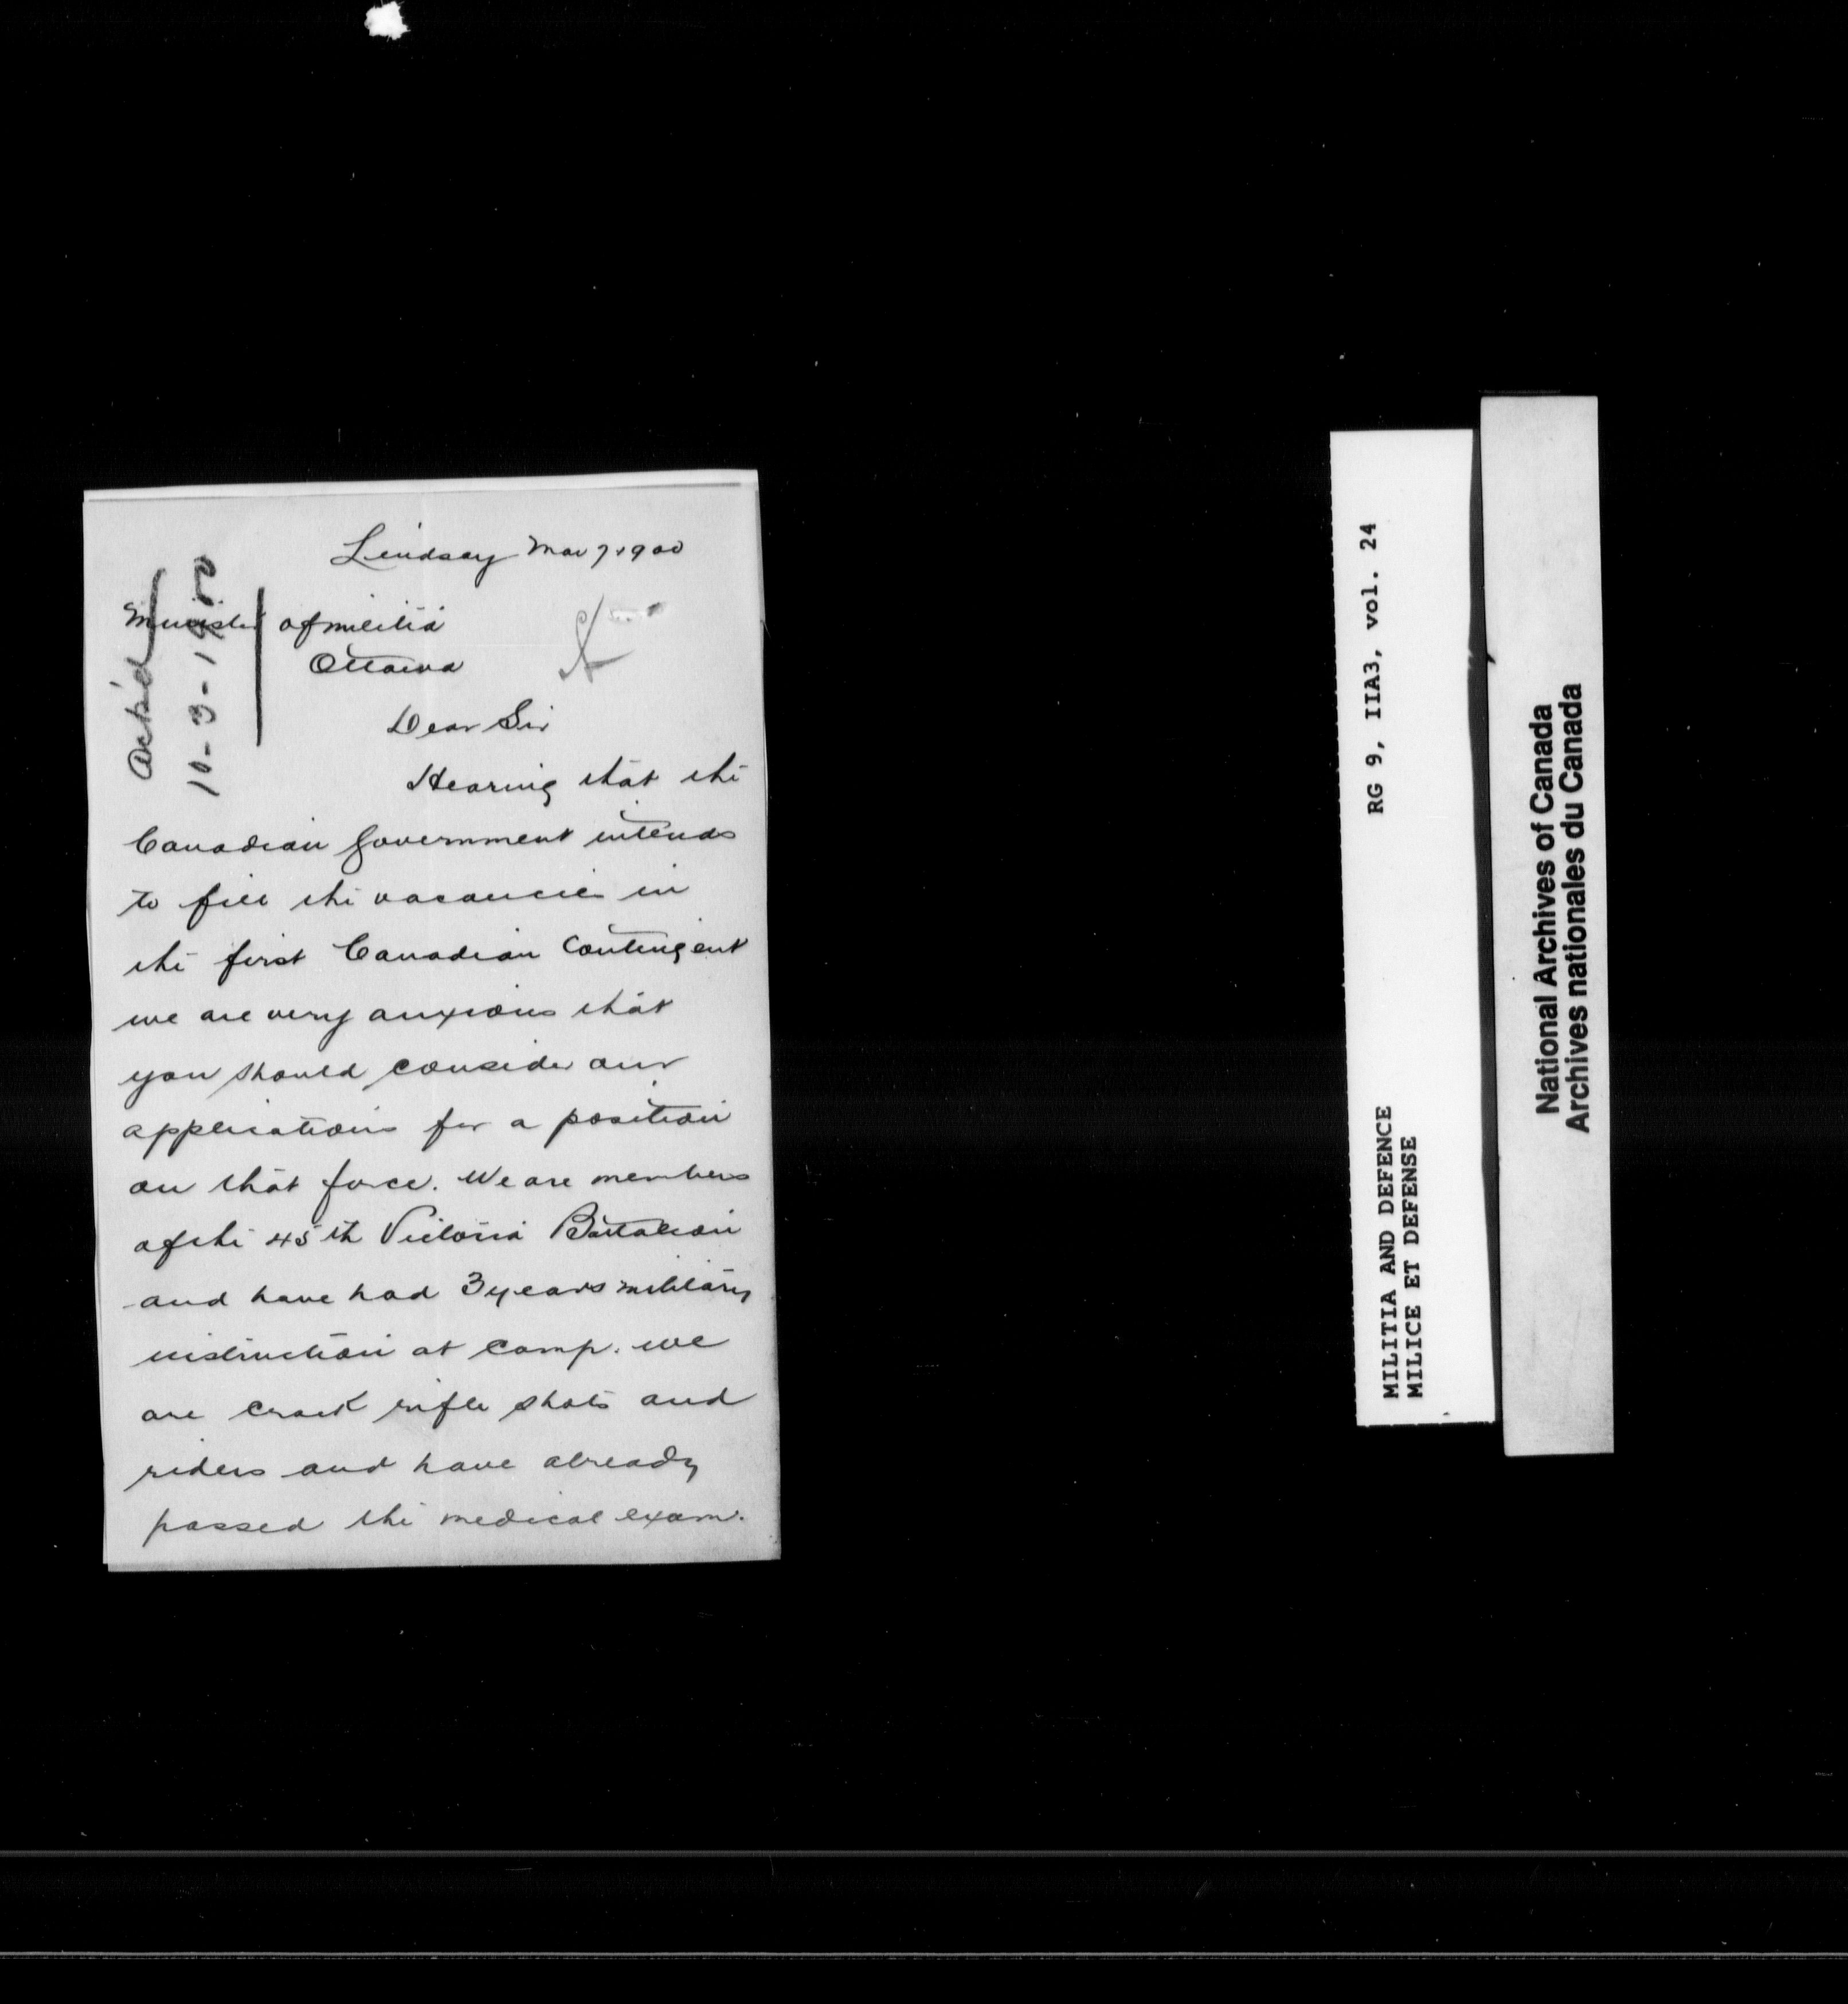 Lindsay Mar 7 1900
Ack'd
10-3-1900
Minister of militia
Ottawa
Dear Sir
Hearing that the
Canadian Government intends
to fill the vacancies in
the first Canadian Contingent
we are very anxious that
you should consider our
applications for a position
on that force. We are members
of the 45th Victoria Battalion
and have had 3 years military
instruction at camp. we
are crack rifle shots and
riders and have already
passed the medical exam.
RG 9, IIA3, vol. 24
MILITIA AND DEFENCE
MILICE ET DEFENSE
National Archives of Canada
Archives nationales du Canada